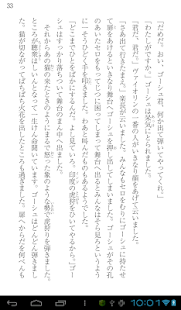 33
「だめだ。おい、ゴーシュ君、何か出て弾いてやってくれ。」
「わたしがですか。」ゴーシュは呆気にとられました。
「君だ、君だ。」ヴァイオリンの一番の人がいきなり顔をあげて云いました。
「さあ出て行きたまえ。」楽長が云いました。みんなもセロをむりにゴーシュに持たせ
て扉をあけるといきなり舞台へゴーシュを押し出してしまいました。ゴーシュがその孔
のあいたセロをもってじつに困ってしまって舞台へ出るとみんなはそら見ろというよう
に一そうひどく手を叩きました。わあと叫んだものもあるようでした。
「どこまでひとをばかにするんだ。よし見ていろ。印度の虎狩をひいてやるから。」ゴー
シュはすっかり落ちついて舞台のまん中へ出ました。
それからあの猫の来たときのようにまるで怒った象のような勢で虎狩りを弾きました。
ところが聴衆はしいんとなって一生けん命聞いています。ゴーシュはどんどん弾きまし
た。猫が切ながってぱちぱち火花を出したところも過ぎました。扉へからだを何べんも
10:01